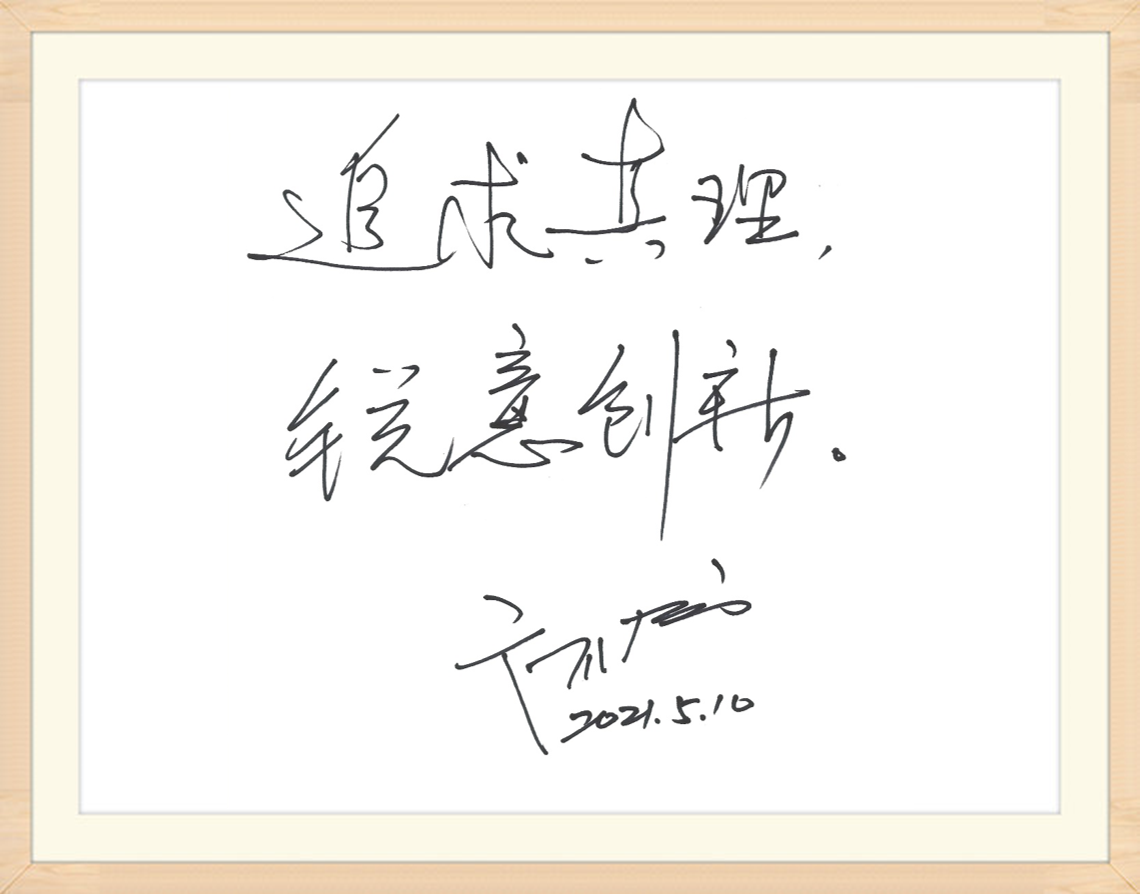 追求真理,
锐意创新。
2021.5.10